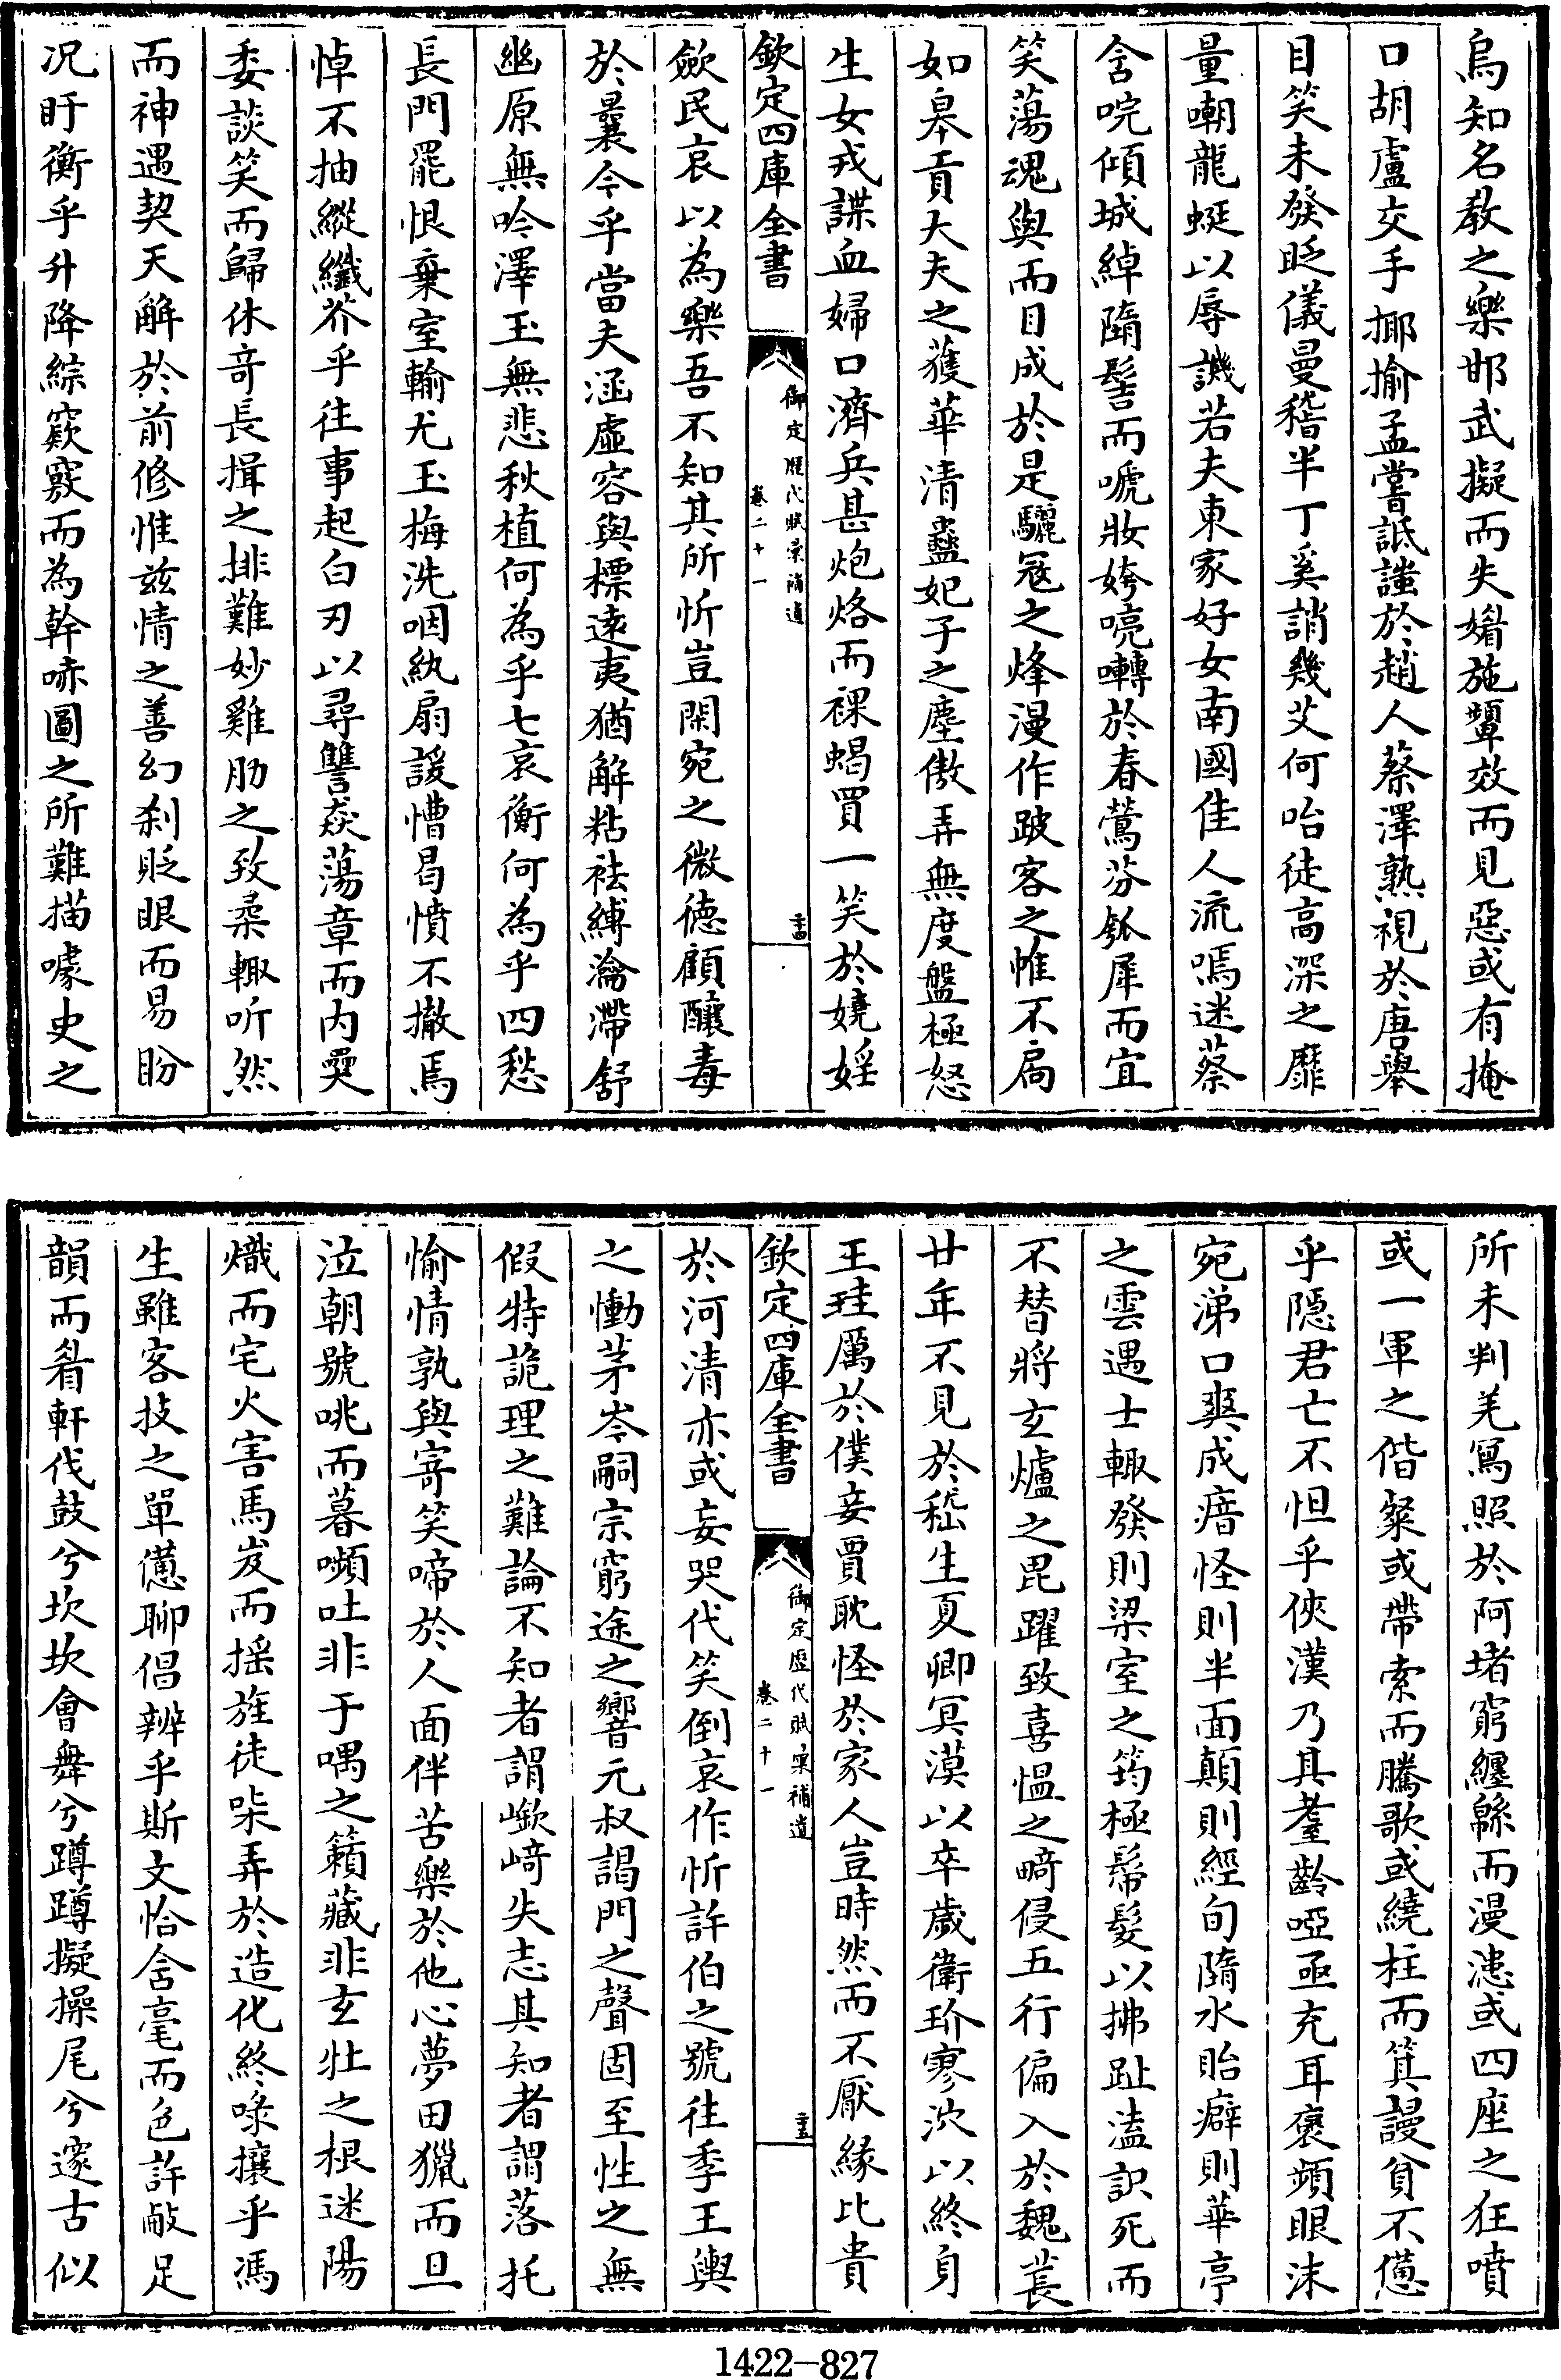 烏知名教之樂邯武擬而失媚施顰效而見惡或有掩
口胡盧交手揶揄孟嘗詆諡於趙人蔡澤熟視於唐舉
目笑未發眨儀曼稽半丁奚誚幾艾何咍徒高深之靡
量嘲龍蜓以辱譏若夫東家好女南國佳人流嗎迷蔡
含唍傾城綽隨髻而嗁妝姱喨囀於春鶯芬瓠犀而宜
笑蕩魂與而目成於是驪冦之烽漫作跛客之帷不扃
如皋貢大夫之獲華清蠱妃子之塵傲弄無度盤極怒
生女戎諜血婦口濟兵甚炮烙而裸蝎買一笑於嬈婬
欽定四庫全書
御定歷代賦彙補遺
卷二十一
二十四
歛民哀以為樂吾不知其所忻豈閑宛之微德顧釀毒
於曩今乎當夫涵虛容與標遠夷猶解粘祛縛瀹滯舒
幽原無吟澤玉無悲秋植何為乎七哀衡何為乎四愁
長門罷恨棄室輸尤玉梅洗咽紈扇諼懵曷憤不撤焉
悼不抽縱纖芥乎往事起白刃以尋讐猋蕩章而内奰
委談笑而歸休奇長揖之排難妙雞肋之致柔輙听然
而神遇契天解於前修惟兹情之善幻刹貶眼而易盼
况盱衡乎升降綜窾竅而為幹哧圖之所難描噱史之
所未判羌寫照於阿堵窮纏緜而漫漶或四座之狂噴
或一軍之偕粲或帶索而騰歌或繞柱而箕謾貧不憊
乎隠君亡不怛乎俠漢乃其耋齡啞亟充耳褎頻眼沫
宛涕口爽成瘖怪則半面顛則經旬隨水貽癖則華亭
之雲遇士輙發則梁室之筠極髴髮以拂趾溘訣死而
不替將玄爐之毘躍致喜愠之畸侵五行偏入於魏萇
廿年不見於嵇生夏卿冥漠以卒歲衛玠寥泬以終身
王珪厲於僕妾賈耽怪於家人豈時然而不厭緣比貴
欽定四庫全書
御定歷代賦彙補遺
卷二十一
二十五
於河清亦或妄哭代笑倒哀作忻許伯之號往季王輿
之慟茅岑嗣宗窮途之響元叔謁門之聲固至性之無
假特詭理之難論不知者謂嶔崎失志其知者謂落托
愉情孰與寄笑啼於人面伴苦樂於他心夢田獵而旦
泣朝號咷而暮嚬吐非于喁之籟藏非玄牡之根迷陽
熾而宅火害馬岌而摇旌徒哚弄於造化終喙攘乎馮
生雖客技之單憊聊倡辨乎斯文恰含毫而色許敲足
韻而眉軒伐鼓兮坎坎會舞兮蹲蹲擬操尾兮邃古似
1422-827